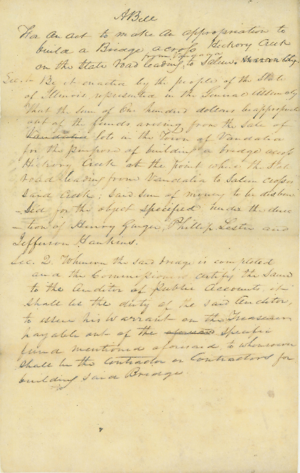 A Bill
For An act to make An appropriation to
build a Bridge across Hickory Creek
on the State Road leading from Vandalia to Salem
Sec 1 Be it enacted by the people of the State
of Illinois represented in the General Assembly
that the sum of One hundred dollars be appropriated
out of the funds arising from the Sale of
lots in the Town of Vandalia
for the purpose of building a bridge across
Hickory Creek at the point where the State
Road leading from Vandalia to Salem crosses
Said Creek, Said Sum of money to be disbur
sed for the object Specified under the direc
tion of Henry Phillip Lester and
Jefferson Hankins.
Sec. 2. Whenever the said Bridge is completed
and the Commissioners certify the Same
to the Auditor of Public Accounts, it
shall be the duty of the said Auditor,
to issue his Warrant on the Treasurer
payable out of the Specific
fund mentioned aforesaid to whomsoever
shall be the Contractor or Contractors for
building Said Bridge